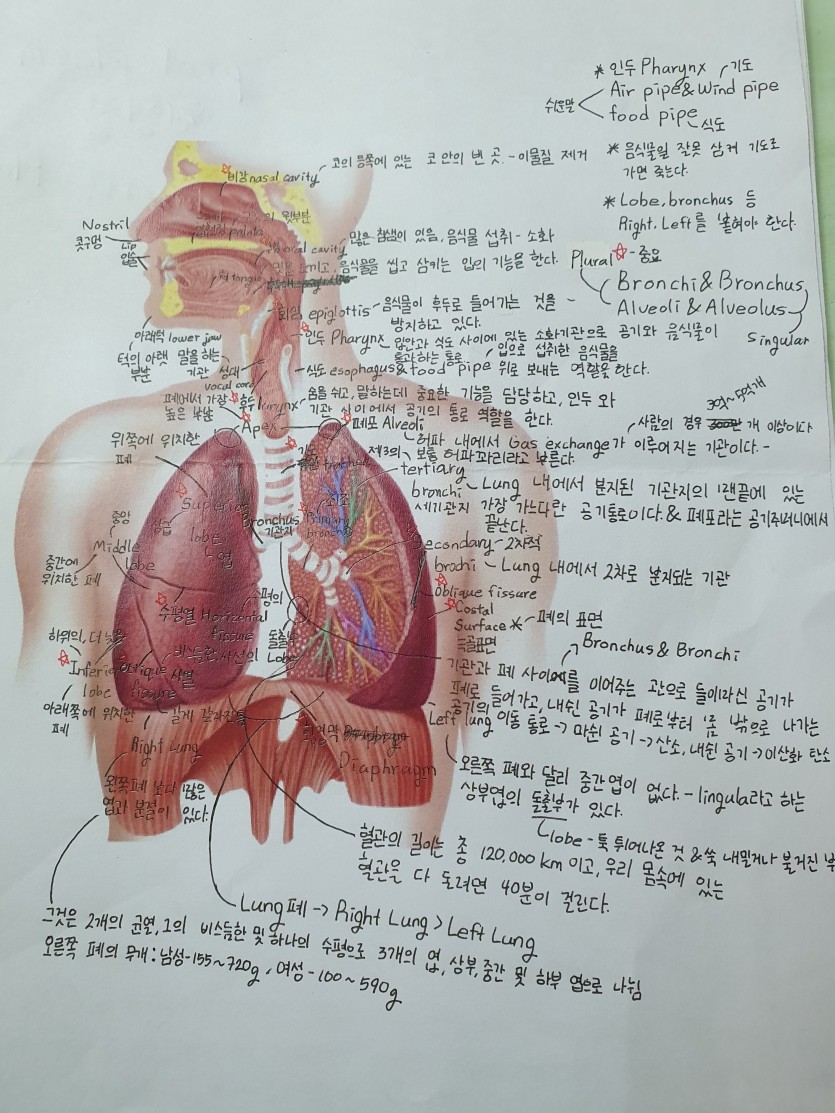 * 인두 Pharynx 기도
쉬운말
Air pipe & Wind pipe
food pipe
식도
* 음식물일 잘못 삼켜 기도로
가면 죽는다.
* Lobe, bronchus 등
Right, Left를 붙혀야 한다.
Plural - 중요
Bronchi & Bronchus
Alveoli & Alveolus
Singular
비강 nasal cavity
코의 등쪽에 있는 코 안의 빈 곳. - 이물질 제거
Nostril
콧구멍
Lip
입술
cavity
많은 침샘이 있음, 음식물 섭취 - 소화
음식물을 씹고 삼키는 입의 기능을 한다.
epiglottis - 음식물이 후두로 들어가는 것을 -
방지하고 있다.
아래턱 lower jaw
턱의 아랫
부분
인두 Pharynx
입안과 식도 사이에 있는 소화기관으로 공기와 음식물이
통과하는 통로
말을 하는
기관
성대
vocal cord
식도 esophagus & food pipe
입으로 섭취한 음식물을
위로 보내는 역할을 한다.
폐에서 가장
높은 부분
Apex
후두 larynx
숨을 쉬고, 말하는데 중요한 기능을 담당하고, 인두와
기관 사이에서 공기의 통로 역할을 한다.
폐포 Alveoli
사람의 경우 개 이상이다
3억~5억개
허파 내에서 Gas exchange가 이루어지는 기관이다. -
보통 허파꽈리라고 부른다.
위쪽에 위치한
폐
제3의
tertiary
bronchi - Lung 내에서 분지된 기관지의 맨끝에 있는
세기관지 가장 가느다란 공기통로이다. & 폐포라는 공기주머니에서
끝난다.
Superior
lobe
엽
Bronchus
기관지
Primary
Secondary - 2차적
brochi - Lung 내에서 2차로 분지되는 기관
중앙
Middle
lobe
중간에
위치한 폐
Oblique fissure
Costal
Surface * - 폐의 표면
늑골표면
수평열 Horizontal
fissure
수평의
돌출부
Lobe
비스듬한, 사선의
Bronchus & Bronchi
기관과 폐 사이를 이어주는 관으로 들이라신 공기가
폐로 들어가고, 내쉰 공기가 폐로부터 몸 밖으로 나가는
공기의 이동 통로 -> 마쉰 공기 -> 산소, 내쉰 공기 -> 이산화 탄소
하위의, 더 낮은
Inferior
lobe
Oblique
fissure
아래쪽에 위치한
폐
길게 갈라진 틈
Right Lung
왼쪽 폐 보다 많은
엽과 분절이 있다.
횡격막
Diaphragm
Left lung
오른쪽 폐와 달리 중간엽이 없다. - lingula라고 하는
상부엽의 돌출부가 있다.
lobe - 툭 튀어나온 것 & 쑥 내밀거나 불거진 부
혈관의 길이는 총 120,000 km 이고, 우리 몸속에 있는
혈관을 다 돌려면 40분이 걸린다.
Lung 폐 -> Right Lung > Left Lung
그것은 2개의 균열, 1의 비스듬한 및 하나의 수평으로 3개의 엽, 상부, 중간 및 하부 엽으로 나뉨
오른쪽 폐의 무개 : 남성 - 155 ~ 720g, 여성 - 100 ~ 590g